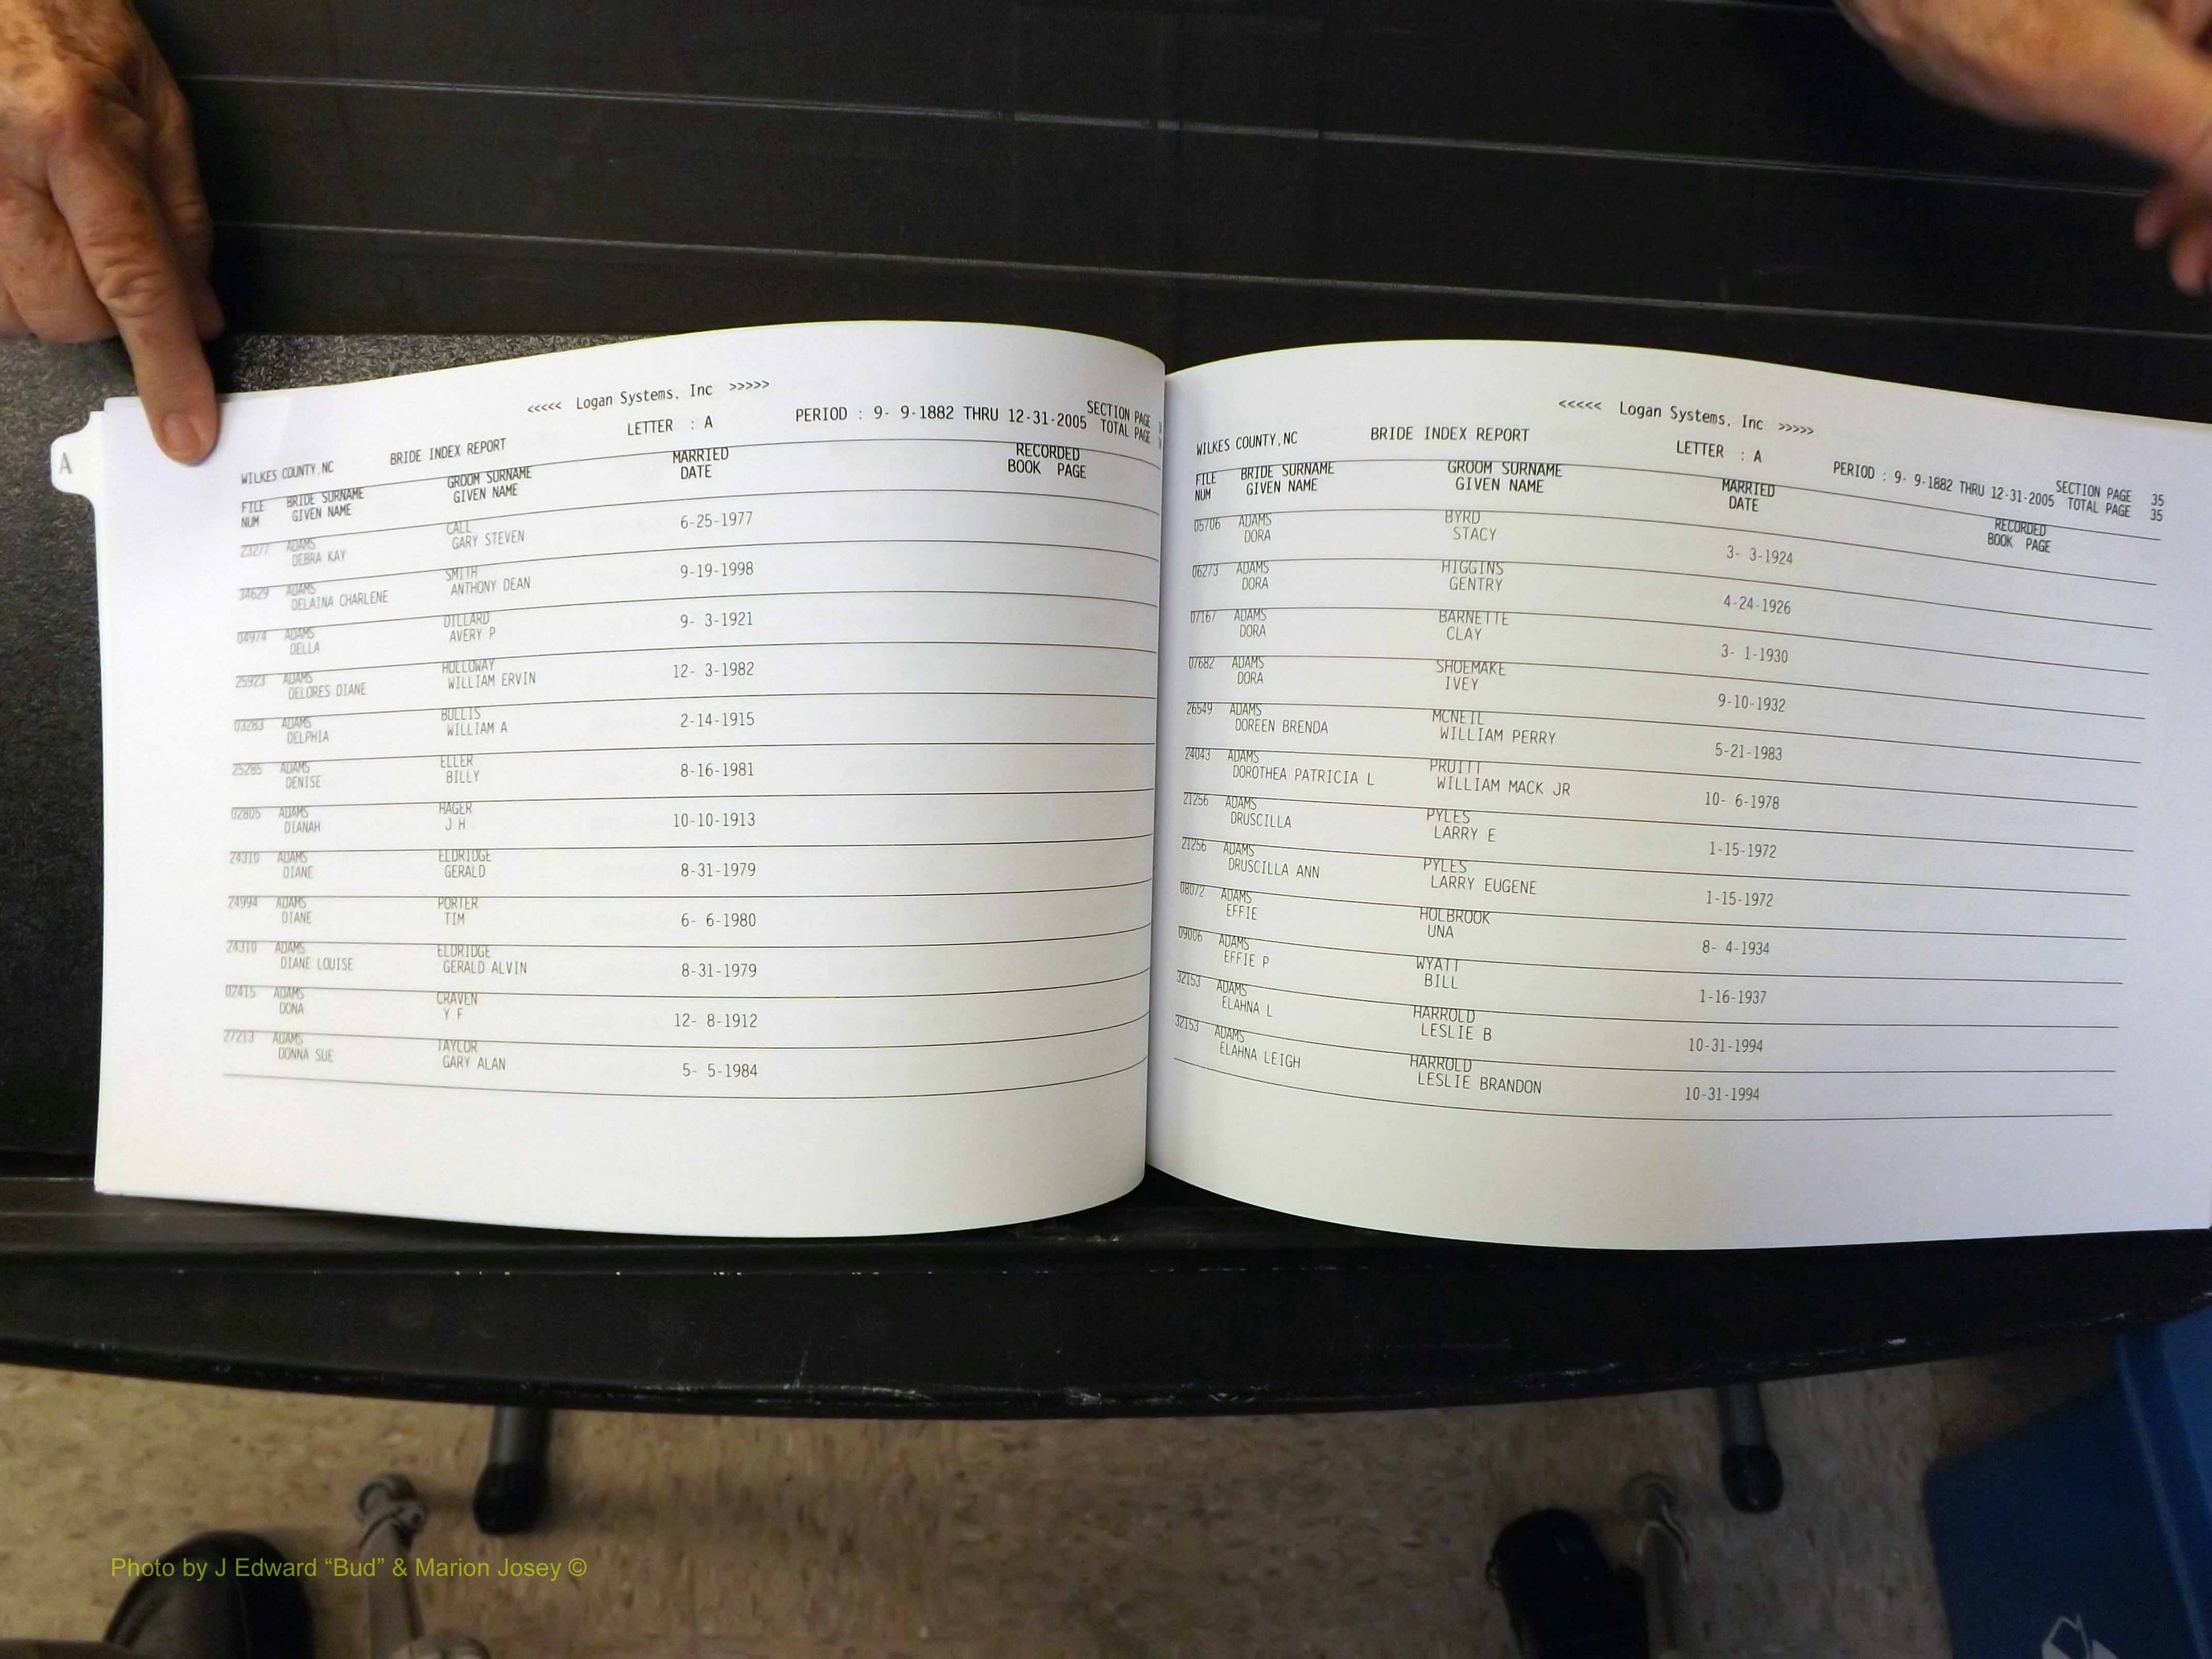 A
<<<<< Logan Systems, Inc >>>>>
WILKES COUNTY,NC BRIDE INDEX REPORT LETTER : A PERIOD : 9- 9-1882 THRU 12-31-2005 SECTION PAGE
TOTAL PAGE
FILE BRIDE SURNAME GROOM SURNAME MARRIED RECORDED
NUM GIVEN NAME GIVEN NAME DATE BOOK PAGE
23277 ADAMS CALL 6-25-1977
DEBRA KAY GARY STEVEN
34629 ADAMS SMITH 9-19-1998
DELAINA CHARLENE ANTHONY DEAN
04974 ADAMS DILLARD 9- 3-1921
DELLA AVERY P
25923 ADAMS HOLLOWAY 12- 3-1982
DELORES DIANE WILLIAM ERVIN
03283 ADAMS BULLIS 2-14-1915
DELPHIA WILLIAM A
25285 ADAMS ELLER 8-16-1981
DENISE BILLY
02805 ADAMS HAGER 10-10-1913
DIANAH J H
24310 ADAMS ELDRIDGE 8-31-1979
DIANE GERALD
24994 ADAMS PORTER 6- 6-1980
DIANE TIM
24310 ADAMS ELDRIDGE 8-31-1979
DIANE LOUISE GERALD ALVIN
02415 ADAMS CRAVEN 12- 8-1912
DONA Y F
27213 ADAMS TAYLOR 5- 5-1984
DONNA SUE GARY ALAN
<<<<< Logan Systems, Inc >>>>>
WILKES COUNTY,NC BRIDE INDEX REPORT LETTER : A PERIOD : 9- 9-1882 THRU 12-31-2005 SECTION PAGE 35
TOTAL PAGE 35
FILE BRIDE SURNAME GROOM SURNAME MARRIED RECORDED
NUM GIVEN NAME GIVEN NAME DATE BOOK PAGE
05706 ADAMS BYRD 3- 3-1924
DORA STACY
06273 ADAMS HIGGINS 4-24-1926
DORA GENTRY
07167 ADAMS BARNETTE 3- 1-1930
DORA CLAY
07682 ADAMS SHOEMAKE 9-10-1932
DORA IVEY
26549 ADAMS MCNEIL 5-21-1983
DOREEN BRENDA WILLIAM PERRY
24043 ADAMS PRUITT 10- 6-1978
DOROTHEA PATRICIA L WILLIAM MACK JR
21256 ADAMS PYLES 1-15-1972
DRUSCILLA LARRY E
21256 ADAMS PYLES 1-15-1972
DRUSCILLA ANN LARRY EUGENE
08072 ADAMS HOLBROOK 8- 4-1934
EFFIE UNA
09006 ADAMS WYATT 1-16-1937
EFFIE P BILL
32153 ADAMS HARROLD 10-31-1994
ELAHNA L LESLIE B
32153 ADAMS HARROLD 10-31-1994
ELAHNA LEIGH LESLIE BRANDON
Photo by J Edward “Bud” & Marion Josey ©